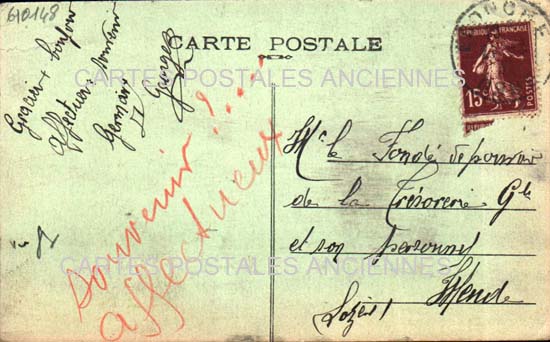 610148
CARTE POSTALE
Gracieux bonjour
Affectueux Souvenir
Georges
Souvenir !...
affectueux
Mr le Fondé de pouvoir
de la Trésorerie Gle
et son personnel
Mende
Lozère
RÉPUBLIQUE FRANÇAISE
15
POSTES
CARTES POSTALES ANCIENNES
CARTES POSTALES ANCIENNES